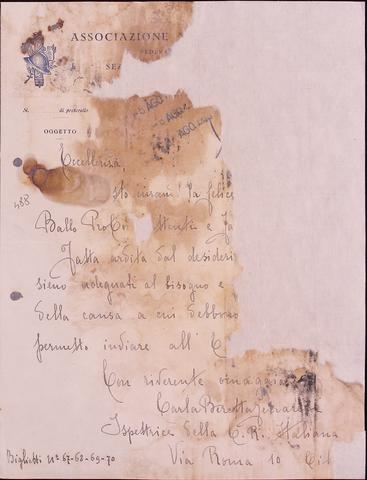 ASSOCIAZIONE
FEDERA
SEZ
N. di protocollo
-5 AGO.
OGGETTO
AGO.
Eccellenza
488
la felice
Ballo Pro Co
Fatta ardita dal desideri
sieno adeguati al bisogno e
della causa a cui debbono
permetto inviare all' E
Con riverente omaggio
Carla Beretta
Ispettrice della C. R. Italiana
Via Roma 10
Biglietti Nº 67-68-69-70